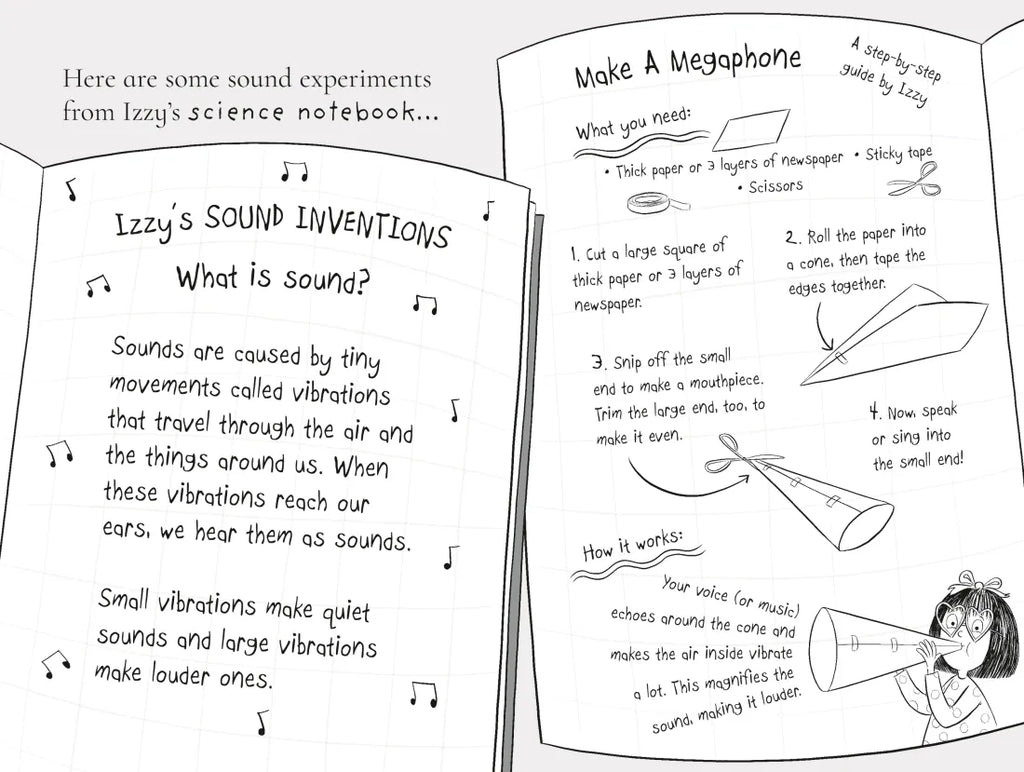 Here are some sound experiments
from Izzy's science notebook...
Izzy's SOUND INVENTIONS
What is sound?
Sounds are caused by tiny
movements called vibrations
that travel through the air and
the things around us. When
these vibrations reach our
ears, we hear them as sounds.
Small vibrations make quiet
sounds and large vibrations
make louder ones.
Make A Megaphone
A step-by-step
guide by Izzy
What you need:
• Thick paper or 3 layers of newspaper • Sticky tape
• Scissors
1. Cut a large square of
thick paper or 3 layers of
newspaper.
2. Roll the paper into
a cone, then tape the
edges together.
3. Snip off the small
end to make a mouthpiece.
Trim the large end, too, to
make it even.
4. Now, speak
or sing into
the small end!
How it works:
Your voice (or music)
echoes around the cone and
makes the air inside vibrate
a lot. This magnifies the
sound, making it louder.